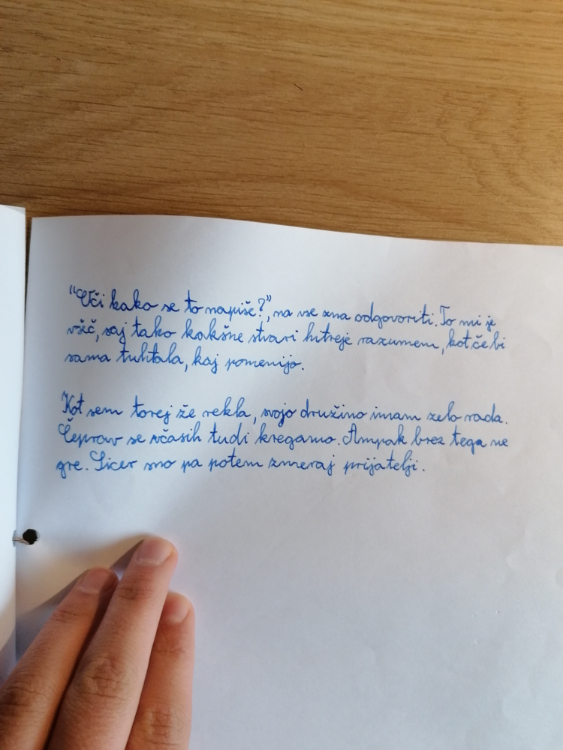 "Oči kako se to napiše?", na vse zna odgovoriti. To mi je
všeč, saj tako kakšne stvari hitreje razumem, kot če bi
sama tuhtala, kaj pomenijo.
Kot sem torej že rekla, svojo družino imam zelo rada.
Čeprav se včasih tudi kregamo. Ampak brez tega ne
gre. Sicer smo pa potem zmeraj prijatelji.